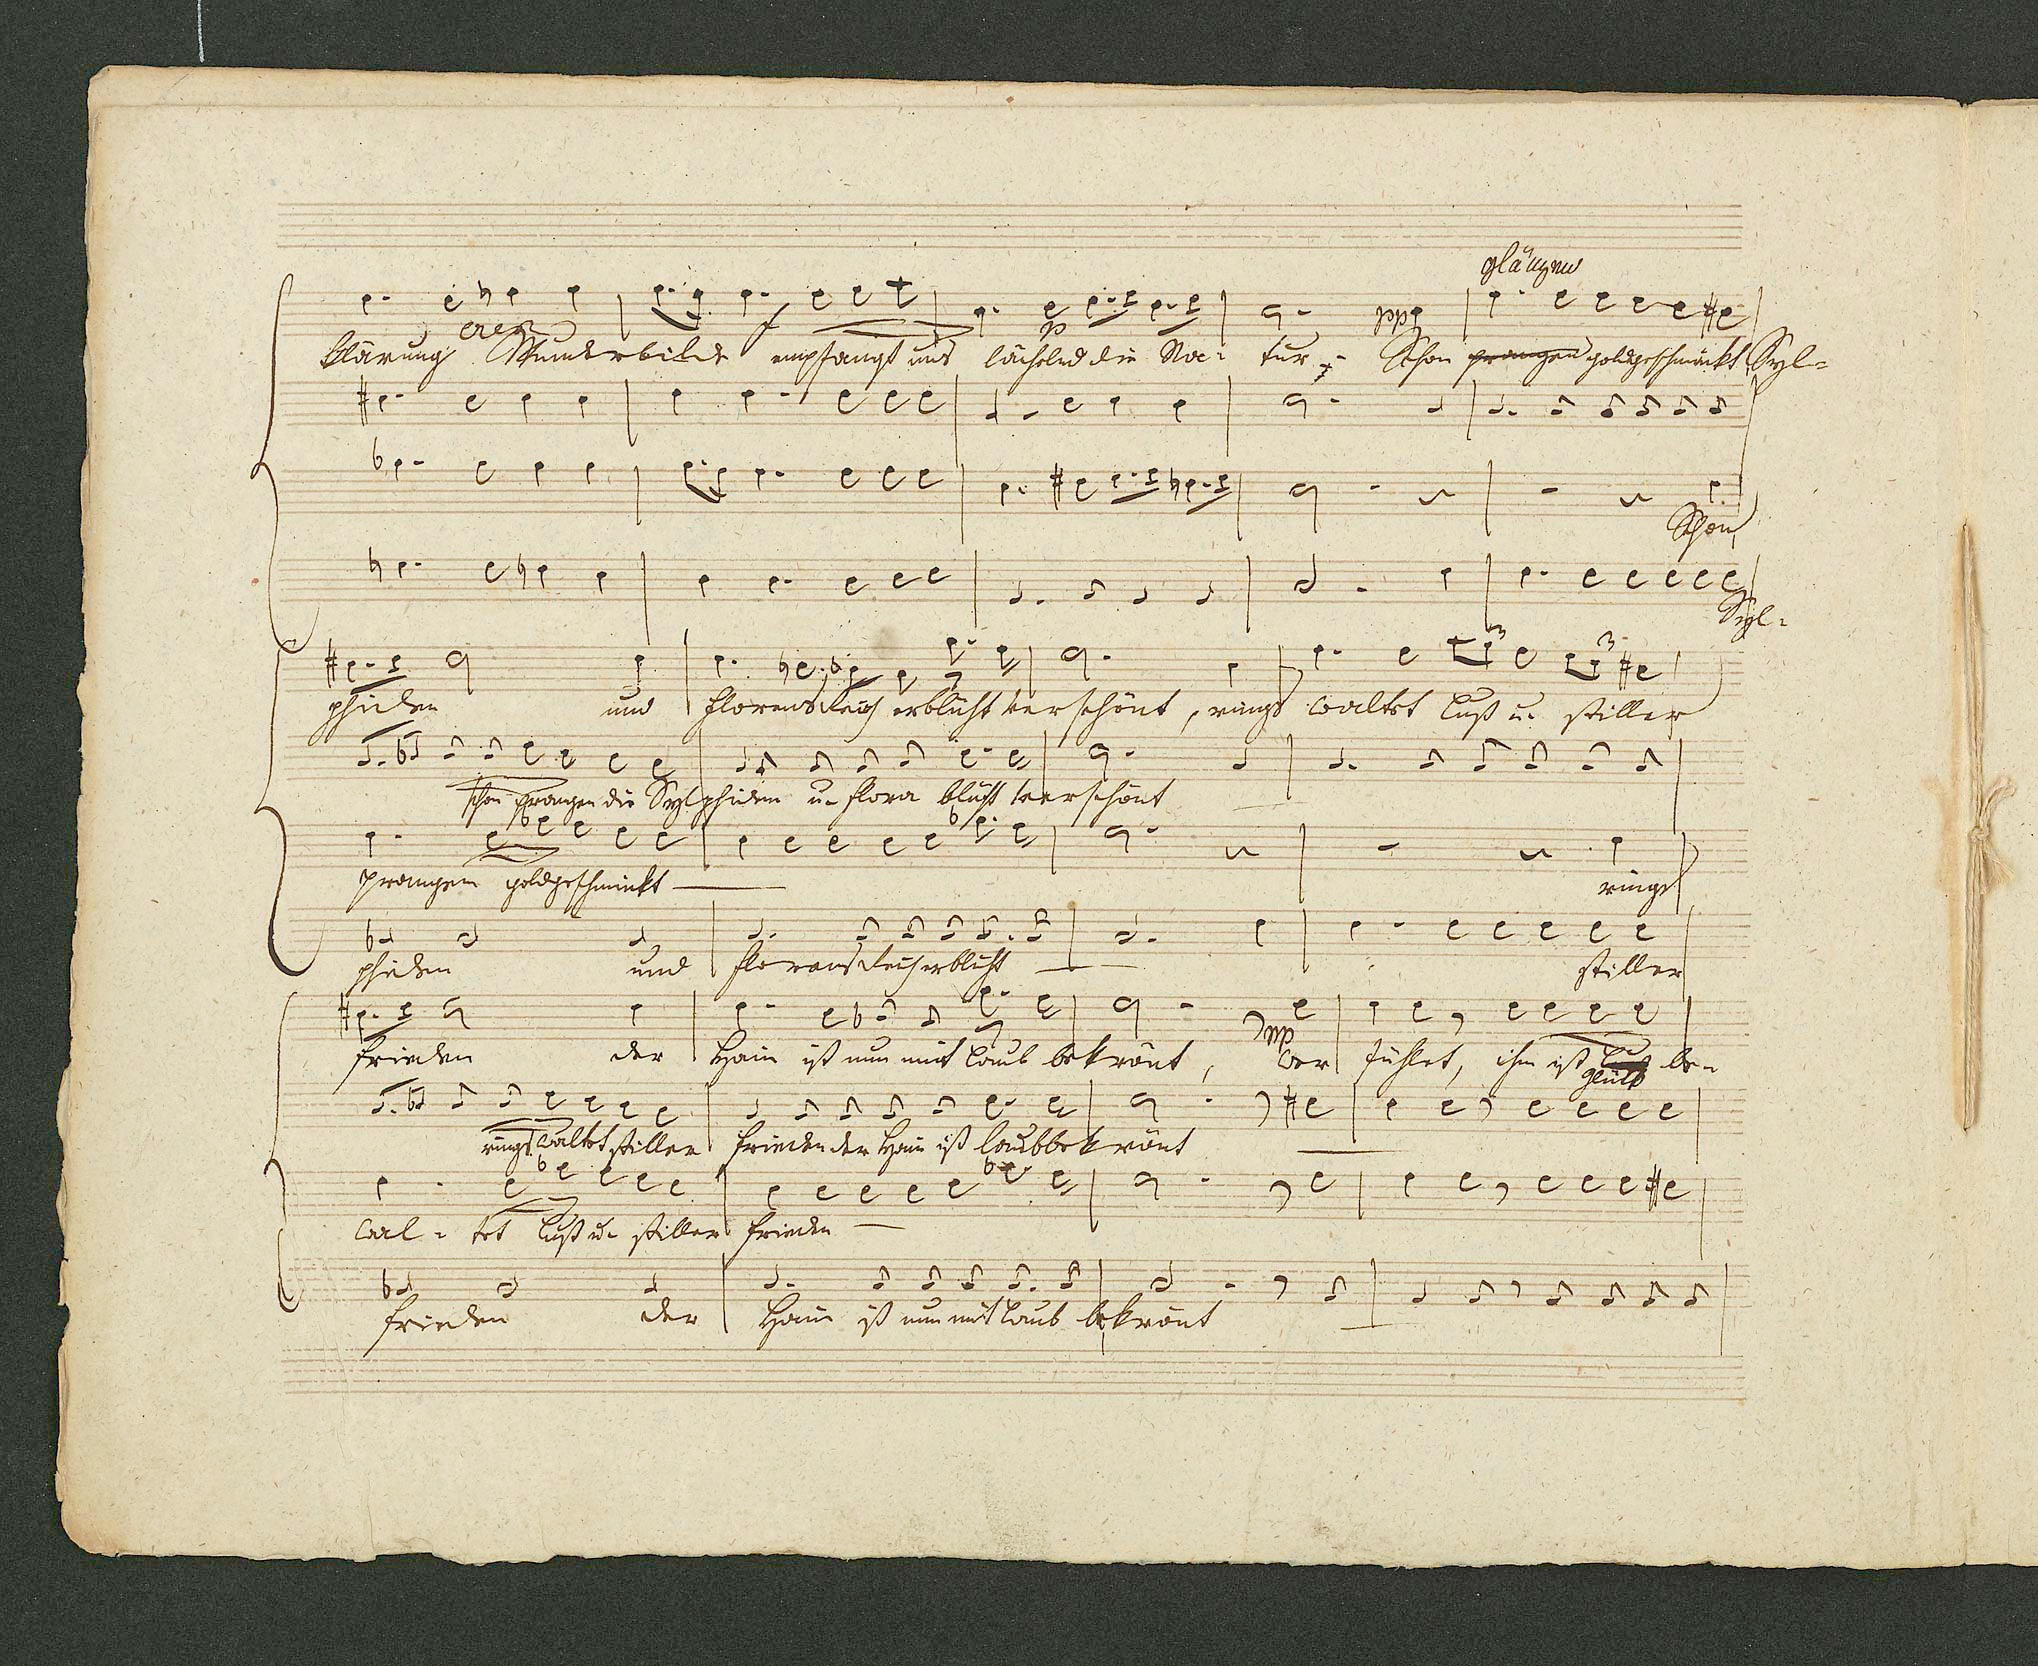 glänzen
cresc f p ppp
klärung Wunderbilde empfangt uns lächelnd die Na- tur - Schon prangen goldgeschmückt Syl-
Schon
Syl-
phiden und Florens Reich erblüht verschönt, rings waltet Lust u. stiller
schon prangen die Sylphiden u. Flora blüht verschönt
prangen goldgeschmückt
rings
phiden und Florens Reich erblüht
stiller
pp
Frieden der Hain ist nun mit Laub bekrönt, wer fühlet, ihm ist be-
Glück
rings waltet stiller Frieden der Hain ist laubbekrönt
wal- tet Lust u. stiller Frieden
Frieden der Hain ist nun mit Laub bekrönt